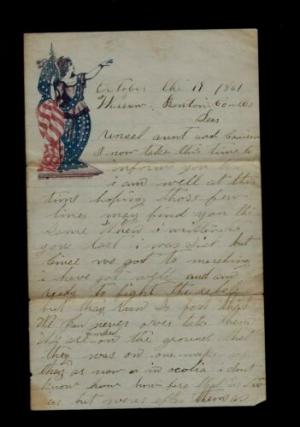 October the 19 1861
Warsaw Benton Co Mo
Dear
uncel aunt and Cousins
I now take this time to
inform you
i am well at this
time hoping these few
lines may find you the
same when i
you last i was sick but
since we got to marching
i have got well and am
ready to fight the rebels
but they run so fast that
We can never over take them
on the ground that
they was on one
they are now in i dont
know how how far that is
but were after them